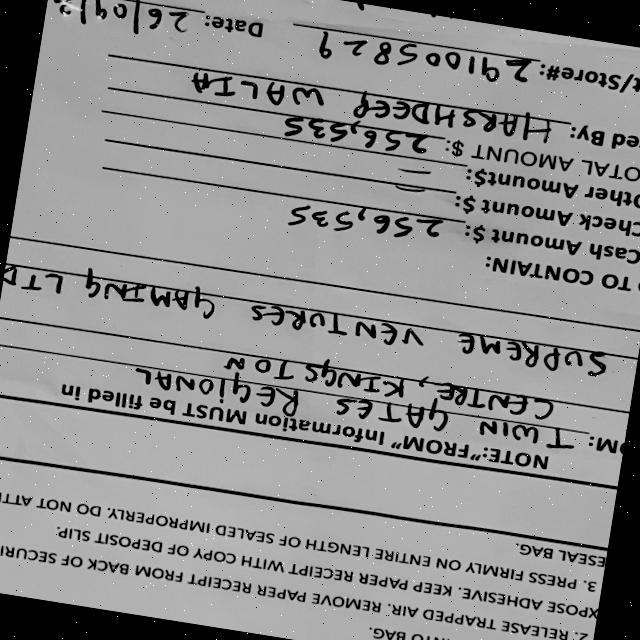 INTO BAG.
2. RELEASE TRAPPED AIR. REMOVE PAPER RECEIPT FROM BACK OF SECURI
XPOSE ADHESIVE. KEEP PAPER RECEIPT WITH COPY OF DEPOSIT SLIP.
3. PRESS FIRMLY ON ENTIRE LENGTH OF SEALED IMPROPERLY. DO NOT ATTE
ESEAL BAG.
NOTE:"FROM" Information MUST be filled in
OM: TWIN GATES REGIONAL
CENTRE, KINGSTON
SUPREME VENTURES GAMING LTD
TO CONTAIN:
Cash Amount $: 256,535
Check Amount $: —
Other Amount$: —
OTAL AMOUNT $: 256,535
red By: HARSHDEEP WALIA
t/Store#: 291005829 Date: 26/09/